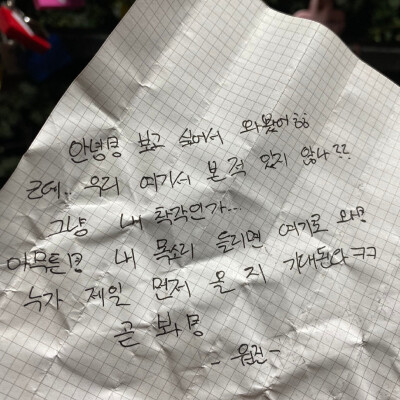 안녕명 보고 싶어서 와봤어ㅎㅎ
근데.. 우리 여기서 본 적 있지 않나??
그냥 내 착각인가...
아무튼명 내 목소리 들리면 여기로 와명
누가 제일 먼저 올 지 기대된다ㅋㅋ
곧 봐명
- 원진 -